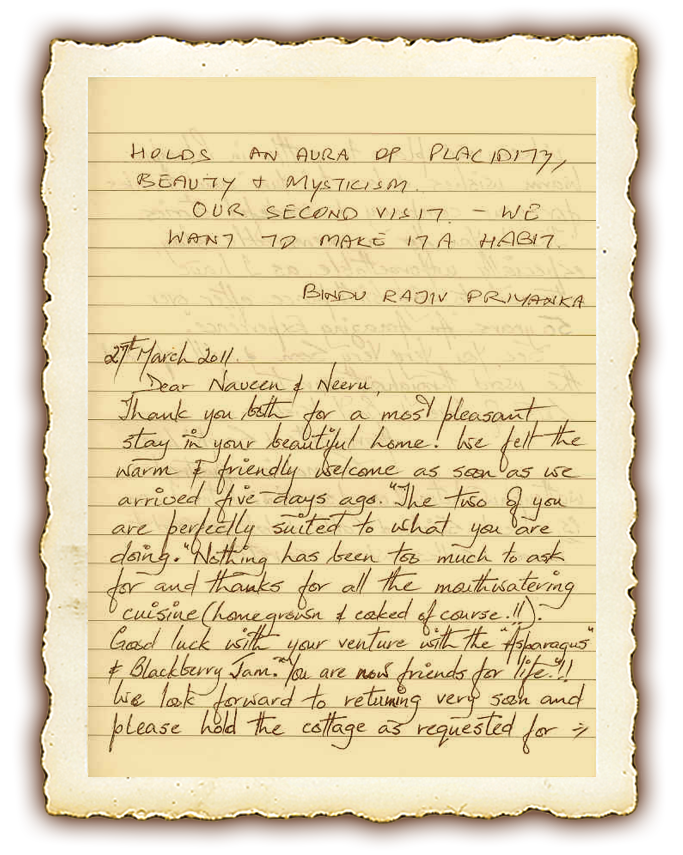 HOLDS AN AURA OF PLACIDITY,
BEAUTY & MYSTICISM.
OUR SECOND VISIT. - WE
WANT TO MAKE IT A HABIT.
BINDU RAJIV PRIYANKA
27th March 2011.
Dear Naveen & Neeru,
Thank you both for a most pleasant
stay in your beautiful home! We felt the
warm & friendly welcome as soon as we
arrived five days ago. "The two of you
are perfectly suited to what you are
doing." Nothing has been too much to ask
for and thanks for all the mouthwatering
cuisine (homegrown & cooked of course!!).
Good luck with your venture with the "Asparagus"
& Blackberry Jam." You are now friends for life."!!
We look forward to returning very soon and
please hold the cottage as requested for